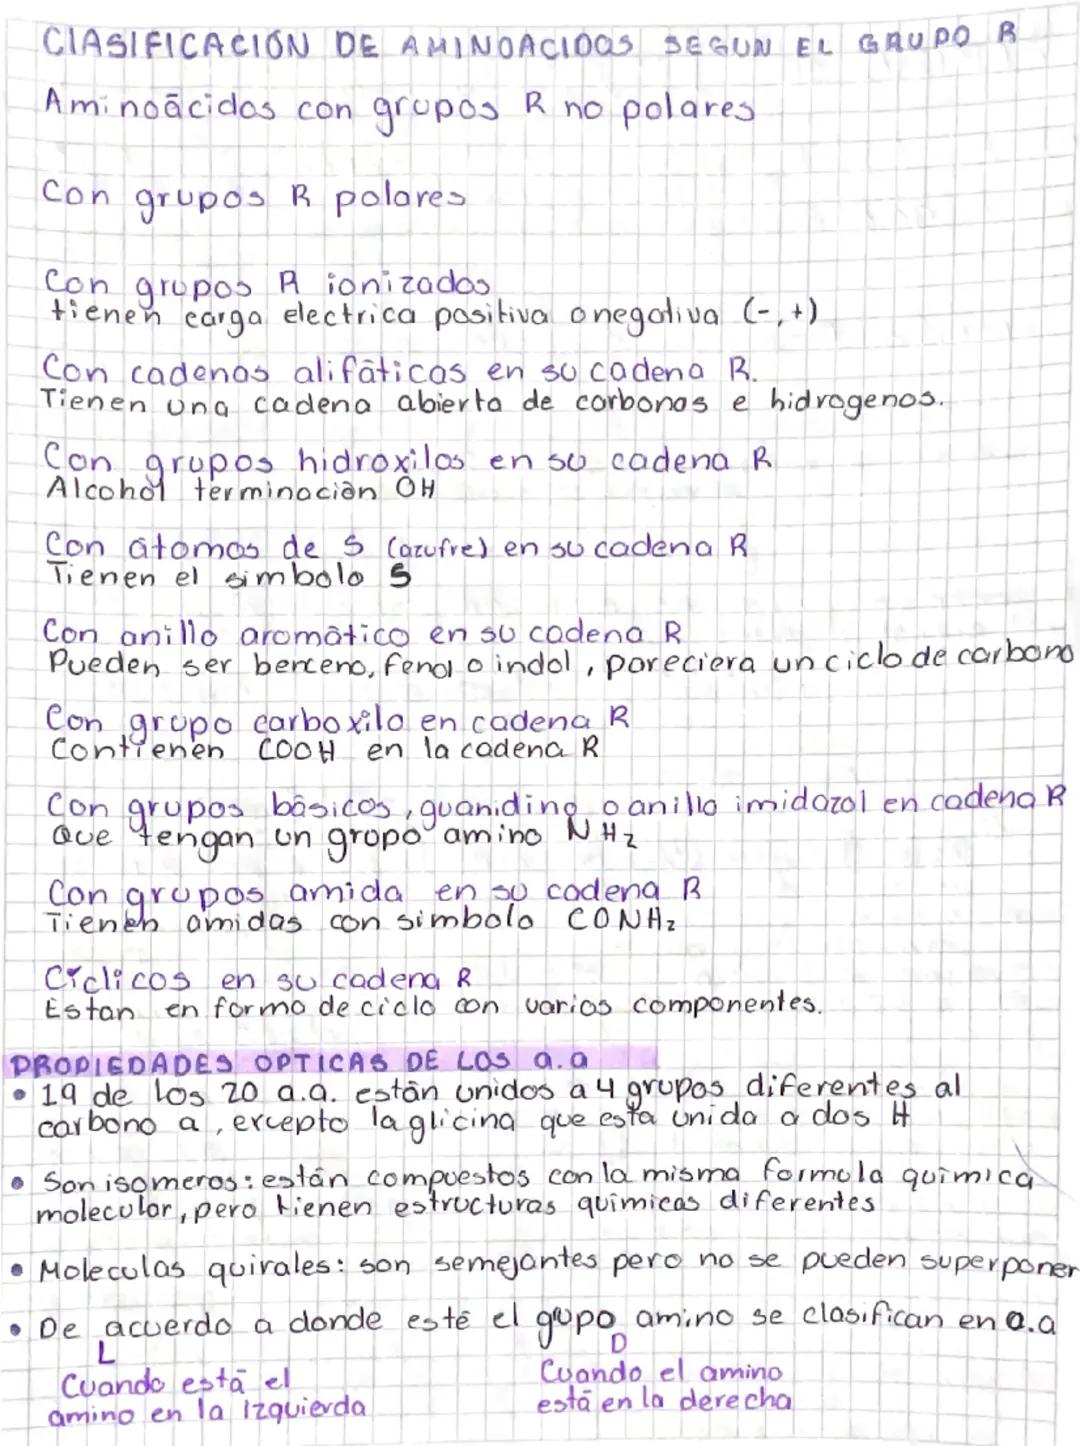 CLASIFICACIÓN DE AMINOACIDOS SEGUN EL GRUPO R
Aminoácidos con grupos R no polares
Con grupos R polares
Con grupos R ionizados
tienen carga electrica positiva o negativa (-,+)
Con cadenas alifáticas en su cadena R.
Tienen una cadena abierta de carbonos e hidrogenos.
Con grupos hidroxilos en su cadena R
Alcohol terminación OH
Con átomos de S (azufre) en su cadena R
Tienen el simbolo S
Con anillo aromático en su cadena R
Pueden ser benceno, fenol o indol, pareciera un ciclo de carbono
Con grupo carboxilo en cadena R
Contienen COOH en la cadena R
Con grupos básicos, guanidino o anillo imidazol en cadena R
Que tengan un grupo amino NH2
Con grupos amida en su cadena R
Tienen amidas con simbolo CONH2
Cíclicos en su cadena R
Estan en forma de ciclo con varios componentes.
PROPIEDADES OPTICAS DE LOS a.a
• 19 de los 20 a.a. están unidos a 4 grupos diferentes al
carbono a, excepto la glicina que esta unida a dos H
• Son isomeros: están compuestos con la misma formula química
molecular, pero tienen estructuras químicas diferentes
• Moleculas quirales: son semejantes pero no se pueden superponer
• De acuerdo a donde esté el gupo amino se clasifican en a.a
L D
Cuando está el Cuando el amino
amino en la izquierda está en la derecha